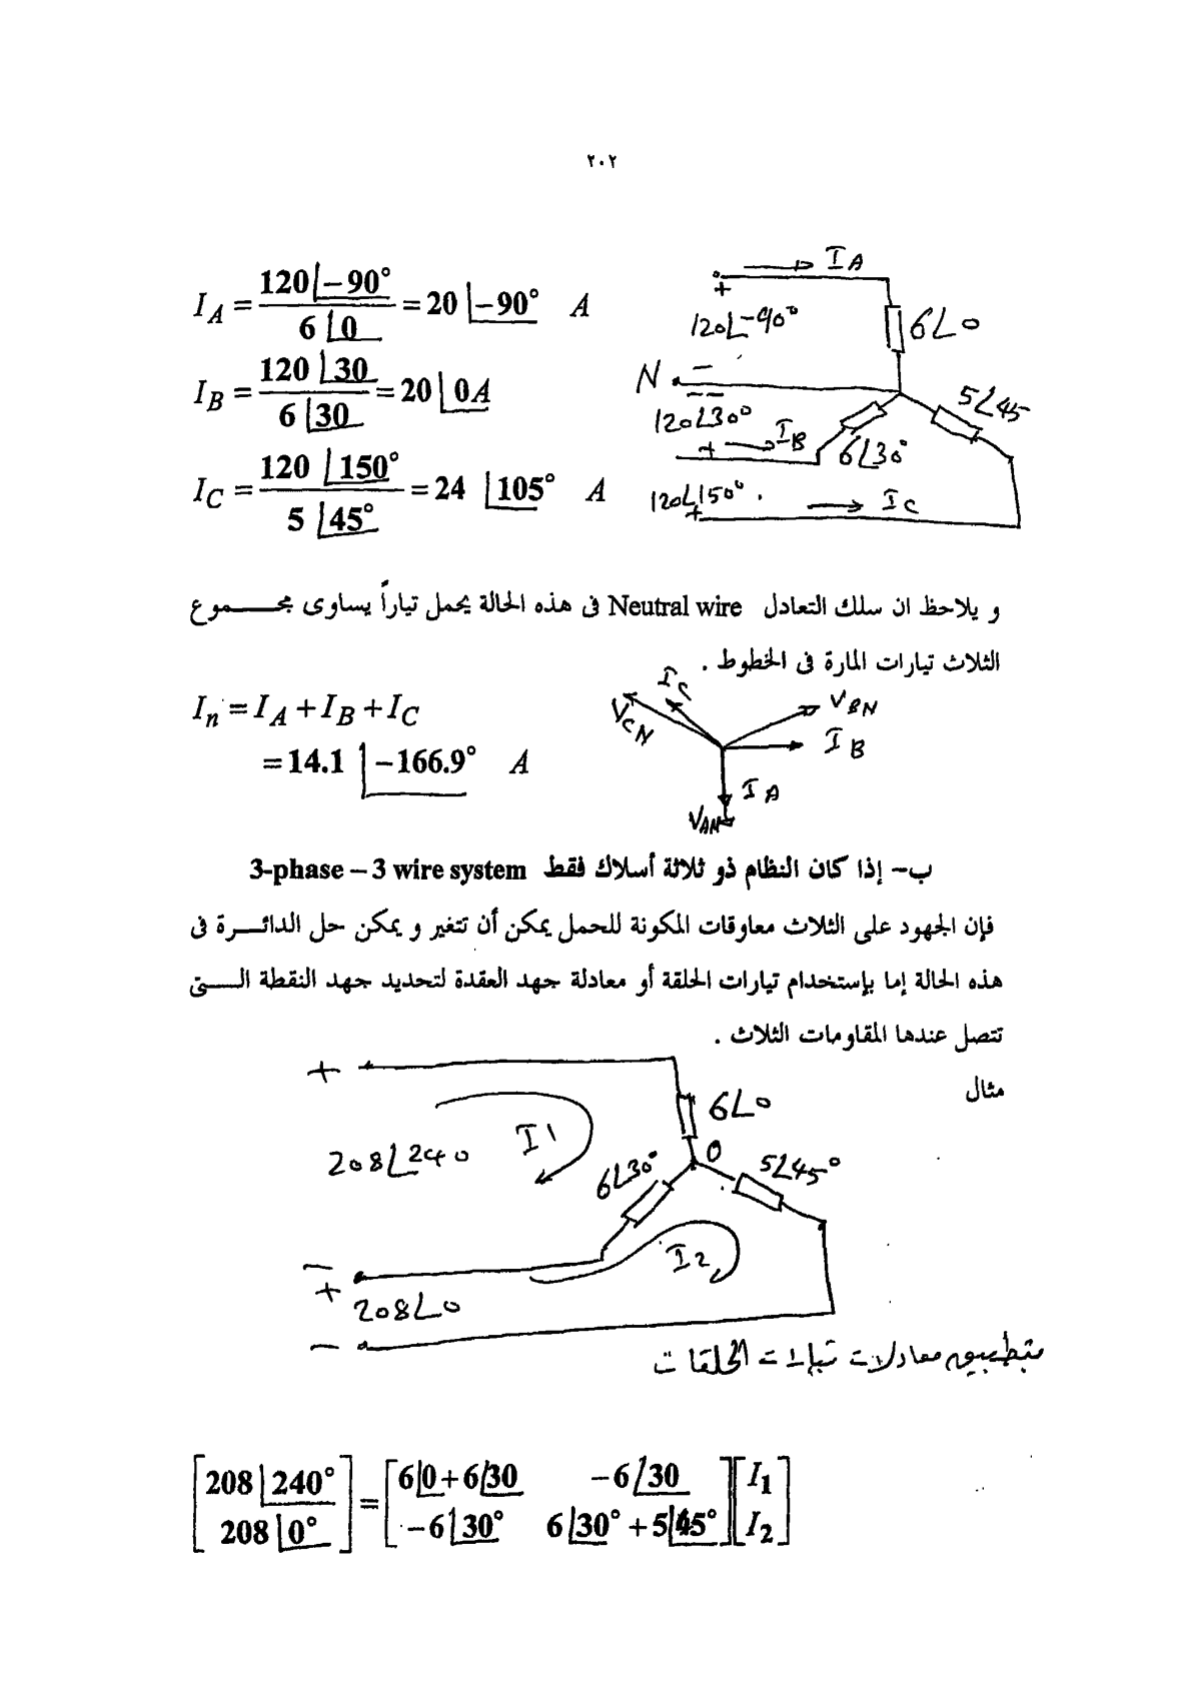 ٢٠٢
I_A = 120∠-90° / 6∠0 = 20∠-90° A
I_B = 120∠30 / 6∠30 = 20∠0 A
I_C = 120∠150° / 5∠45° = 24∠105° A
I_A
+
120∠-90°
6∠0
N
-
--
120∠30°
+
I_B
6∠30°
5∠45
120∠150°
+
I_C
و يلاحظ ان سلك التعادل Neutral wire فى هذه الحالة يحمل تياراً يساوى مجموع
الثلاث تيارات المارة فى الخطوط .
I_n = I_A + I_B + I_C
= 14.1∠-166.9° A
I_C
V_CN
V_BN
I_B
I_A
V_AN
ب- إذا كان النظام ذو ثلاثة أسلاك فقط 3-phase – 3 wire system
فإن الجهود على الثلاث معاوقات المكونة للحمل يمكن أن تتغير و يمكن حل الدائرة فى
هذه الحالة إما بإستخدام تيارات الحلقة أو معادلة جهد العقدة لتحديد جهد النقطة التى
تتصل عندها المقاومات الثلاث .
مثال
+
6∠0
208∠240
I1
0
6∠30°
5∠45°
-
+
I2
208∠0
-
بتطبيق معادلات تيارات الحلقات
[208∠240°; 208∠0°] = [6∠0+6∠30 -6∠30; -6∠30° 6∠30°+5∠45°][I_1; I_2]